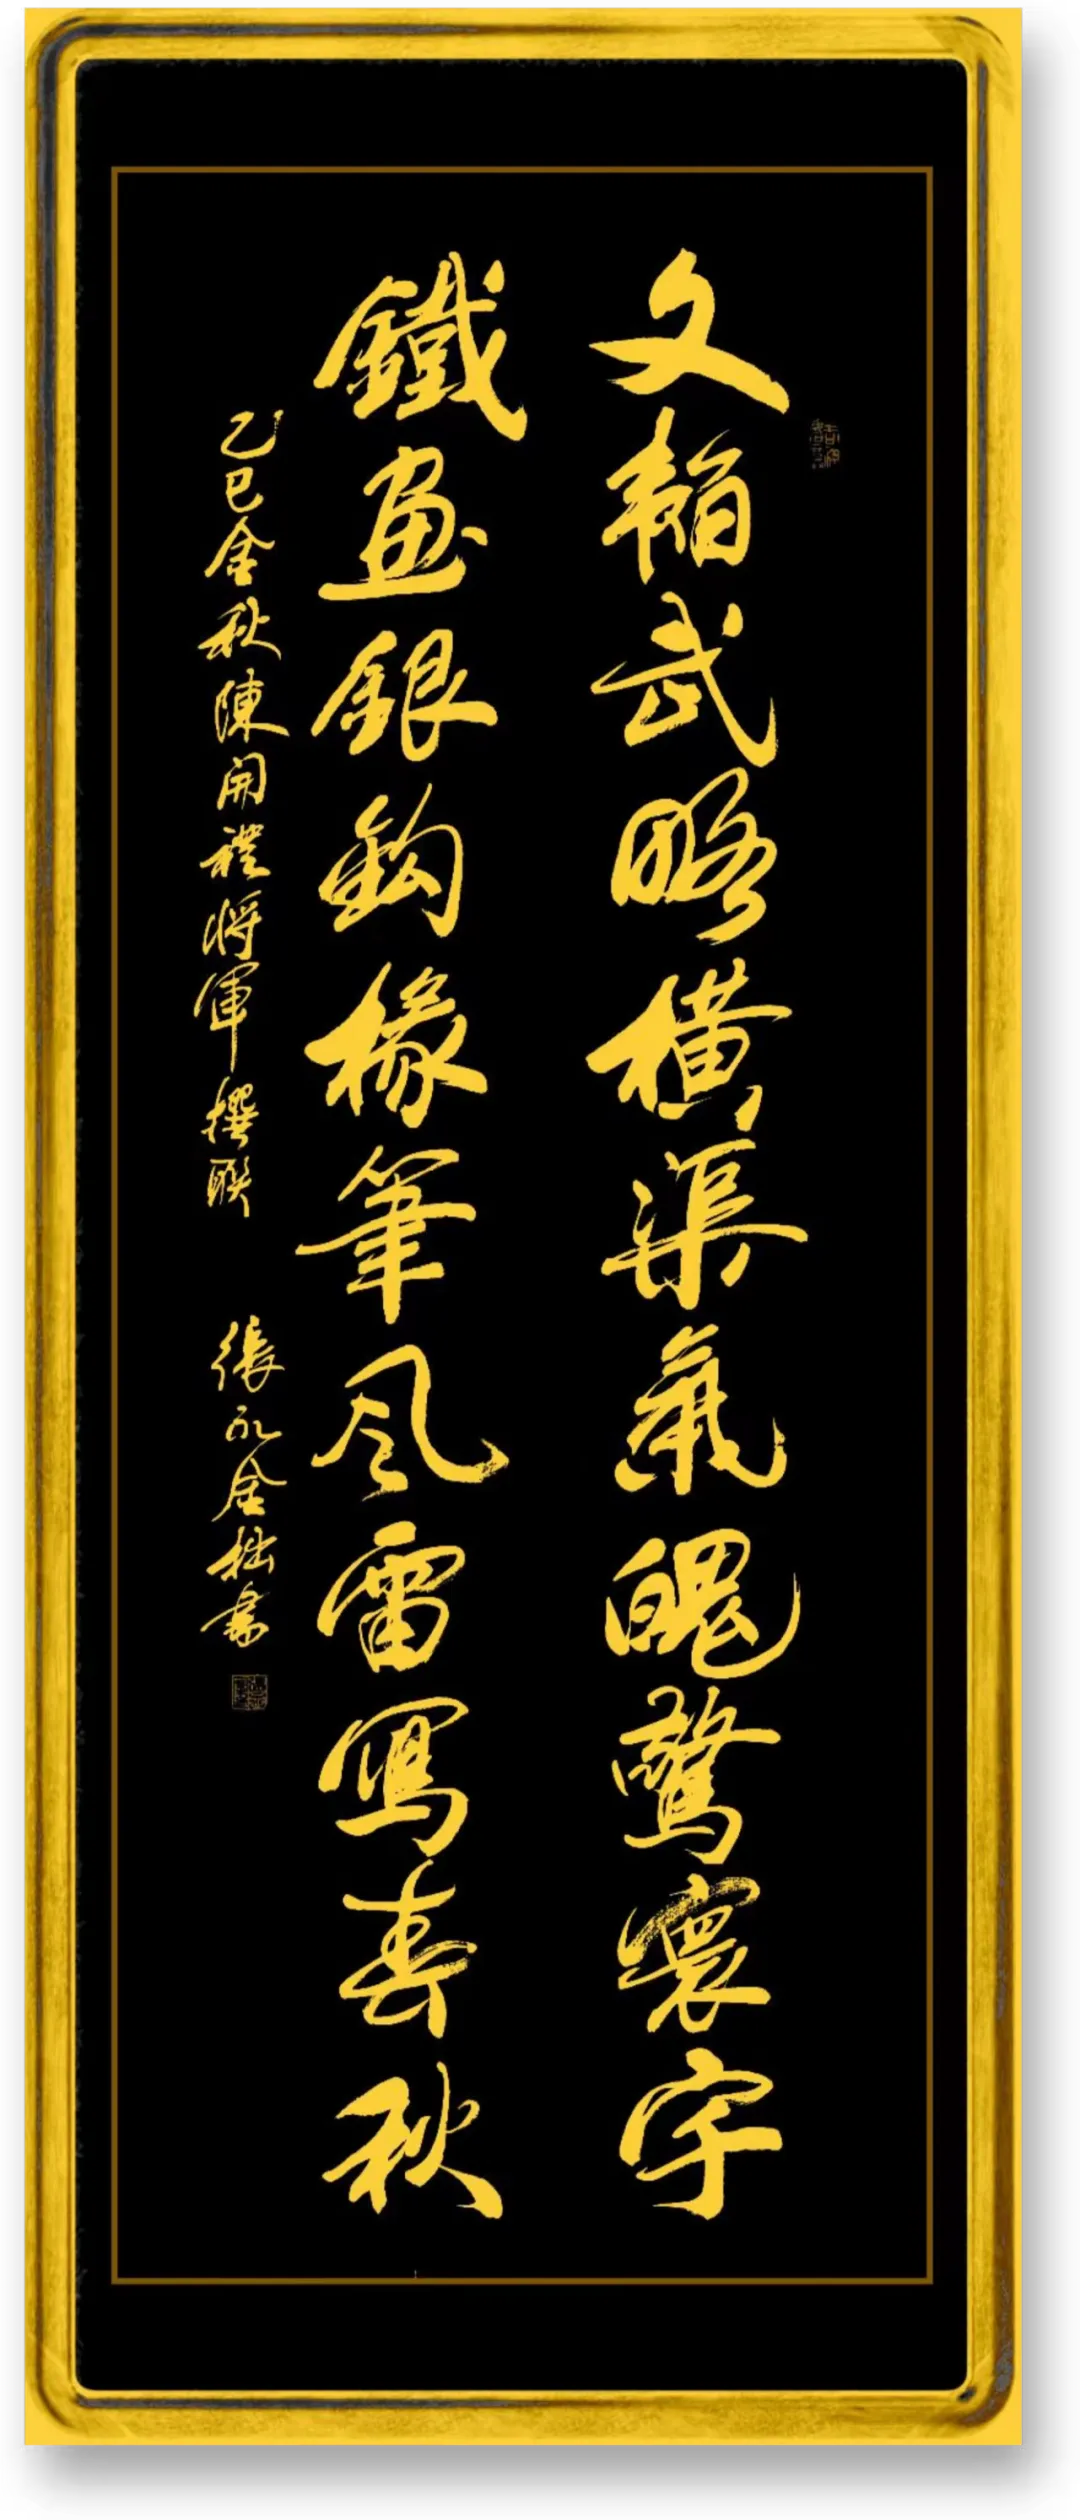 文韜武略橫渠氣魄驚寰宇
鐵畫銀鈎椽筆風雷寫春秋
乙巳金秋陳開禮將軍撰聯
張永金拙書